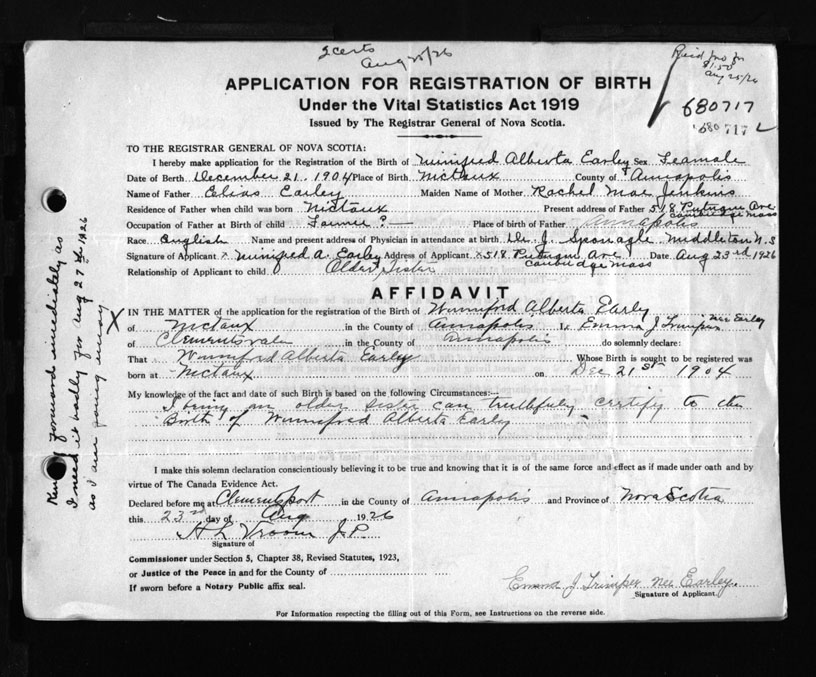 2 certs
Aug 25/26
$1.50
Aug 25/26
680717
680717
APPLICATION FOR REGISTRATION OF BIRTH
Under the Vital Statistics Act 1919
Issued by The Registrar General of Nova Scotia.
TO THE REGISTRAR GENERAL OF NOVA SCOTIA:
I hereby make application for the Registration of the Birth of Winifred Alberta Earley Sex Feamale
Date of Birth December 21. 1904 Place of Birth Nictaux County of Annapolis
Name of Father Elias Earley Maiden Name of Mother Rachel Mae Jenkins
Residence of Father when child was born Nictaux Present address of Father 518 Putnam Ave
Cambridge Mass
Occupation of Father at Birth of child Farmer ? Place of birth of Father Annapolis
Race English Name and present address of Physician in attendance at birth Dr. J. Sponagle Middleton N.S
Signature of Applicant x Winifred A. Earley Address of Applicant x 518 Putnam Ave Date Aug 23rd 1926
Relationship of Applicant to child Older Sister Cambridge Mass
AFFIDAVIT
X IN THE MATTER of the application for the registration of the Birth of Winniford Alberta Early
of Nictaux in the County of Annapolis I, Emma J Trimper nee Earley
of Clementsvale in the County of Annapolis do solemnly declare:
That Winniford Alberta Early Whose Birth is sought to be registered was
born at Nictaux on Dec 21st 1904
My knowledge of the fact and date of such Birth is based on the following Circumstances:—
an older sister can truthfuly certify to the
Birth of Winniford Alberta Early
I make this solemn declaration conscientiously believing it to be true and knowing that it is of the same force and effect as if made under oath and by
virtue of The Canada Evidence Act.
Declared before me at Clementsport in the County of Annapolis and Province of Nova Scotia
this 23rd day of Aug 1926
H L Vroom J.P.
Signature of
Commissioner under Section 5, Chapter 38, Revised Statutes, 1923,
or Justice of the Peace in and for the County of
If sworn before a Notary Public affix seal.
Emma J Trimper nee Earley.
Signature of Applicant.
For Information respecting the filling out of this Form, see Instructions on the reverse side.
Kindly forward imediately as
I need it badly for Aug 27th 1926
as I am going away